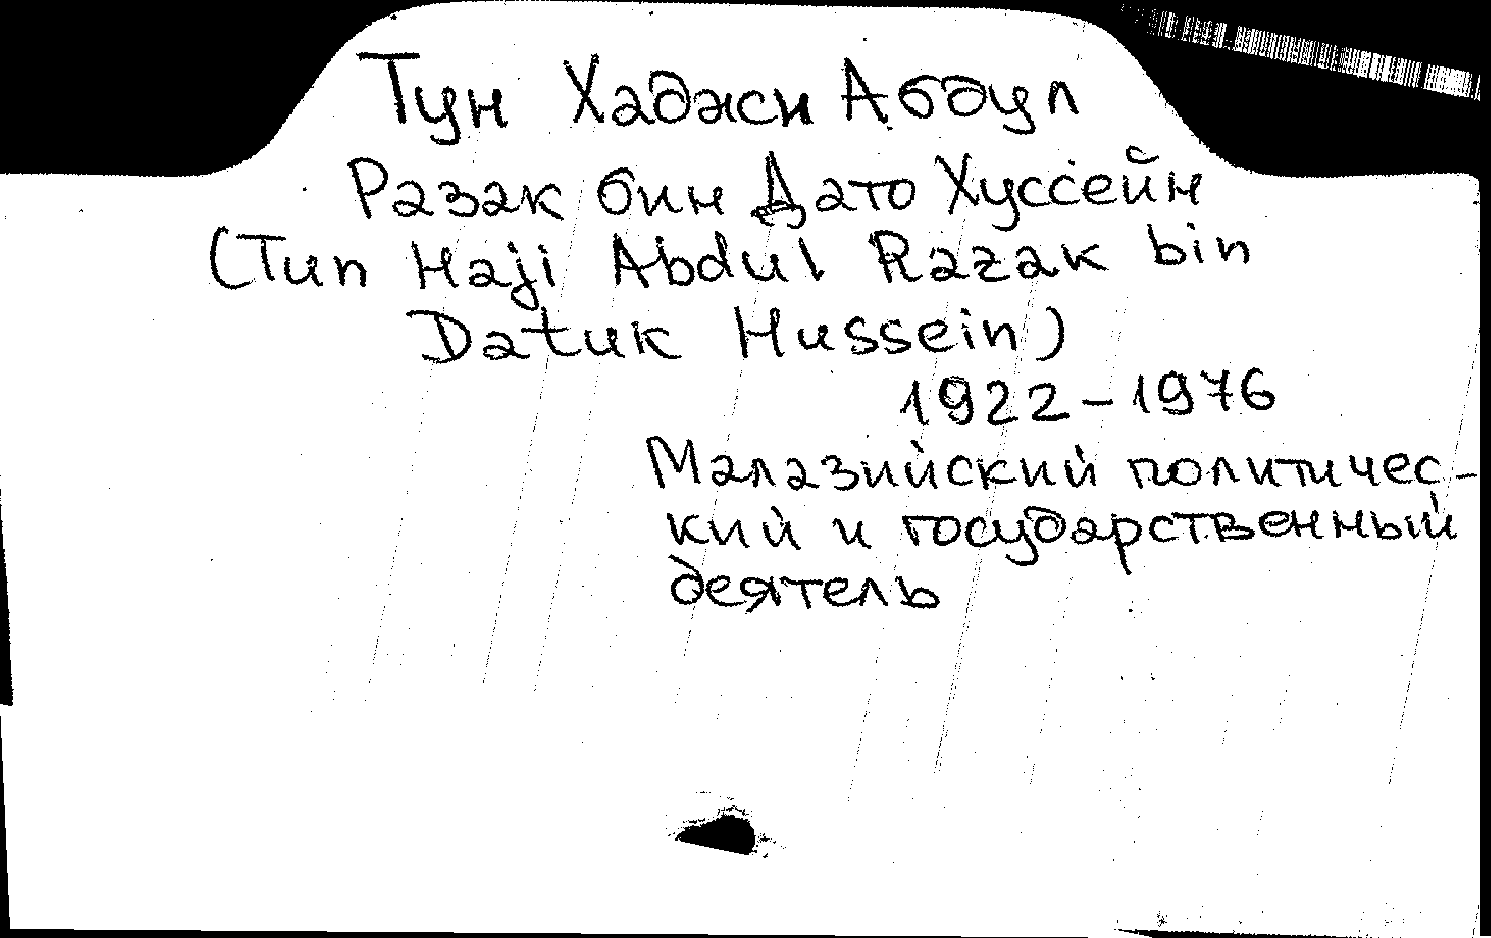 Тун Хаджи Абдул
Разак бин Дато Хуссейн
(Tun Haji Abdul Razak bin
Datuk Hussein)
1922-1976
Малазийский политичес-
кий и государственный
деятель